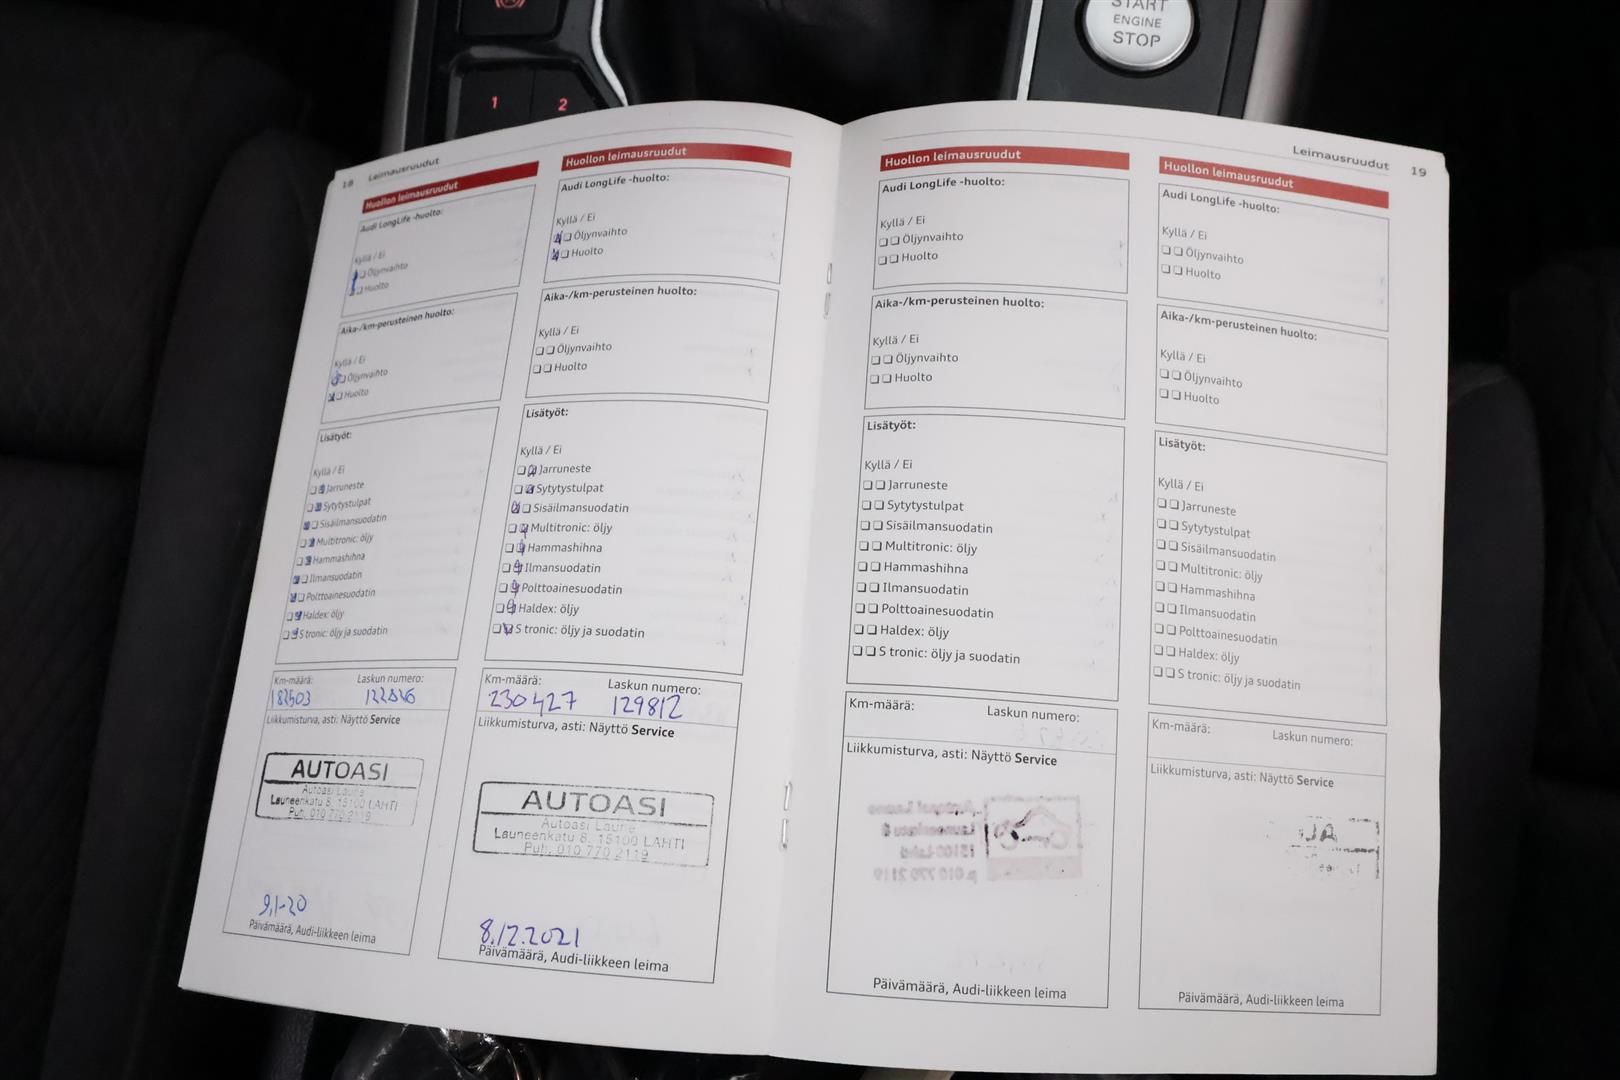 START
ENGINE
STOP
1
2
18 Leimausruudut
Huollon leimausruudut
Audi LongLife -huolto:
Kyllä / Ei
Öljynvaihto
Huolto
Aika-/km-perusteinen huolto:
Kyllä / Ei
Öljynvaihto
Huolto
Lisätyöt:
Kyllä / Ei
Jarruneste
Sytytystulpat
Sisäilmansuodatin
Multitronic: öljy
Hammashihna
Ilmansuodatin
Polttoainesuodatin
Haldex: öljy
S tronic: öljy ja suodatin
Km-määrä: Laskun numero:
182503
Liikkumisturva, asti: Näyttö Service
AUTOASI
Autoasi Laune
Launeenkatu 8, 15100 LAHTI
Puh. 010 770 2119
9.1-20
Päivämäärä, Audi-liikkeen leima
Huollon leimausruudut
Audi LongLife -huolto:
Kyllä / Ei
Öljynvaihto
Huolto
Aika-/km-perusteinen huolto:
Kyllä / Ei
Öljynvaihto
Huolto
Lisätyöt:
Kyllä / Ei
Jarruneste
Sytytystulpat
Sisäilmansuodatin
Multitronic: öljy
Hammashihna
Ilmansuodatin
Polttoainesuodatin
Haldex: öljy
S tronic: öljy ja suodatin
Km-määrä: Laskun numero:
230427 129812
Liikkumisturva, asti: Näyttö Service
AUTOASI
Autoasi Laune
Launeenkatu 8, 15100 LAHTI
Puh. 010 770 2119
8.12.2021
Päivämäärä, Audi-liikkeen leima
Leimausruudut 19
Huollon leimausruudut
Audi LongLife -huolto:
Kyllä / Ei
Öljynvaihto
Huolto
Aika-/km-perusteinen huolto:
Kyllä / Ei
Öljynvaihto
Huolto
Lisätyöt:
Kyllä / Ei
Jarruneste
Sytytystulpat
Sisäilmansuodatin
Multitronic: öljy
Hammashihna
Ilmansuodatin
Polttoainesuodatin
Haldex: öljy
S tronic: öljy ja suodatin
Km-määrä: Laskun numero:
Liikkumisturva, asti: Näyttö Service
Autoasi Laune
Launeenkatu 8
15100 Lahti
p.010 770 2119
Päivämäärä, Audi-liikkeen leima
Huollon leimausruudut
Audi LongLife -huolto:
Kyllä / Ei
Öljynvaihto
Huolto
Aika-/km-perusteinen huolto:
Kyllä / Ei
Öljynvaihto
Huolto
Lisätyöt:
Kyllä / Ei
Jarruneste
Sytytystulpat
Sisäilmansuodatin
Multitronic: öljy
Hammashihna
Ilmansuodatin
Polttoainesuodatin
Haldex: öljy
S tronic: öljy ja suodatin
Km-määrä: Laskun numero:
Liikkumisturva, asti: Näyttö Service
Päivämäärä, Audi-liikkeen leima